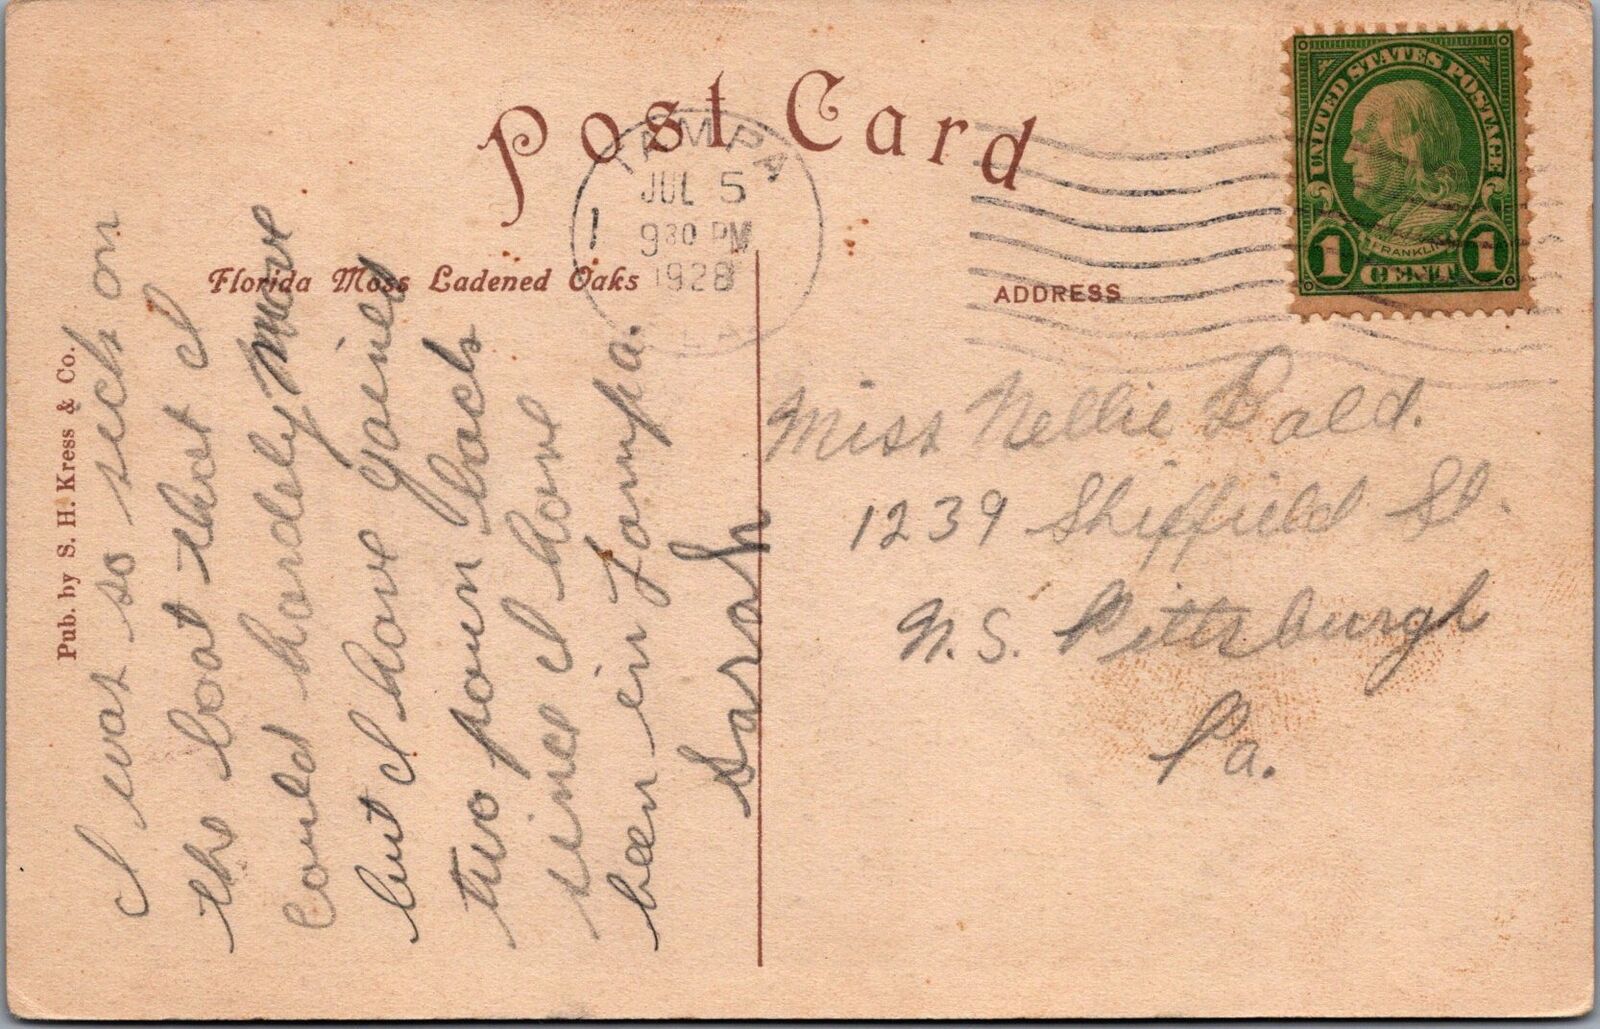 Post Card
TAMPA
JUL 5
930 PM
1928
FLA
1
UNITED STATES POSTAGE
FRANKLIN
1 CENT 1
Florida Moss Ladened Oaks
ADDRESS
Pub. by S. H. Kress & Co.
I was so sick on
the boat that I
could hardely move
but I have gained
two poun back
since I have
been in Tampa.
Sarah
Miss Nellie Dald.
1239 Shiffield St.
N.S. Pittsburgh
Pa.